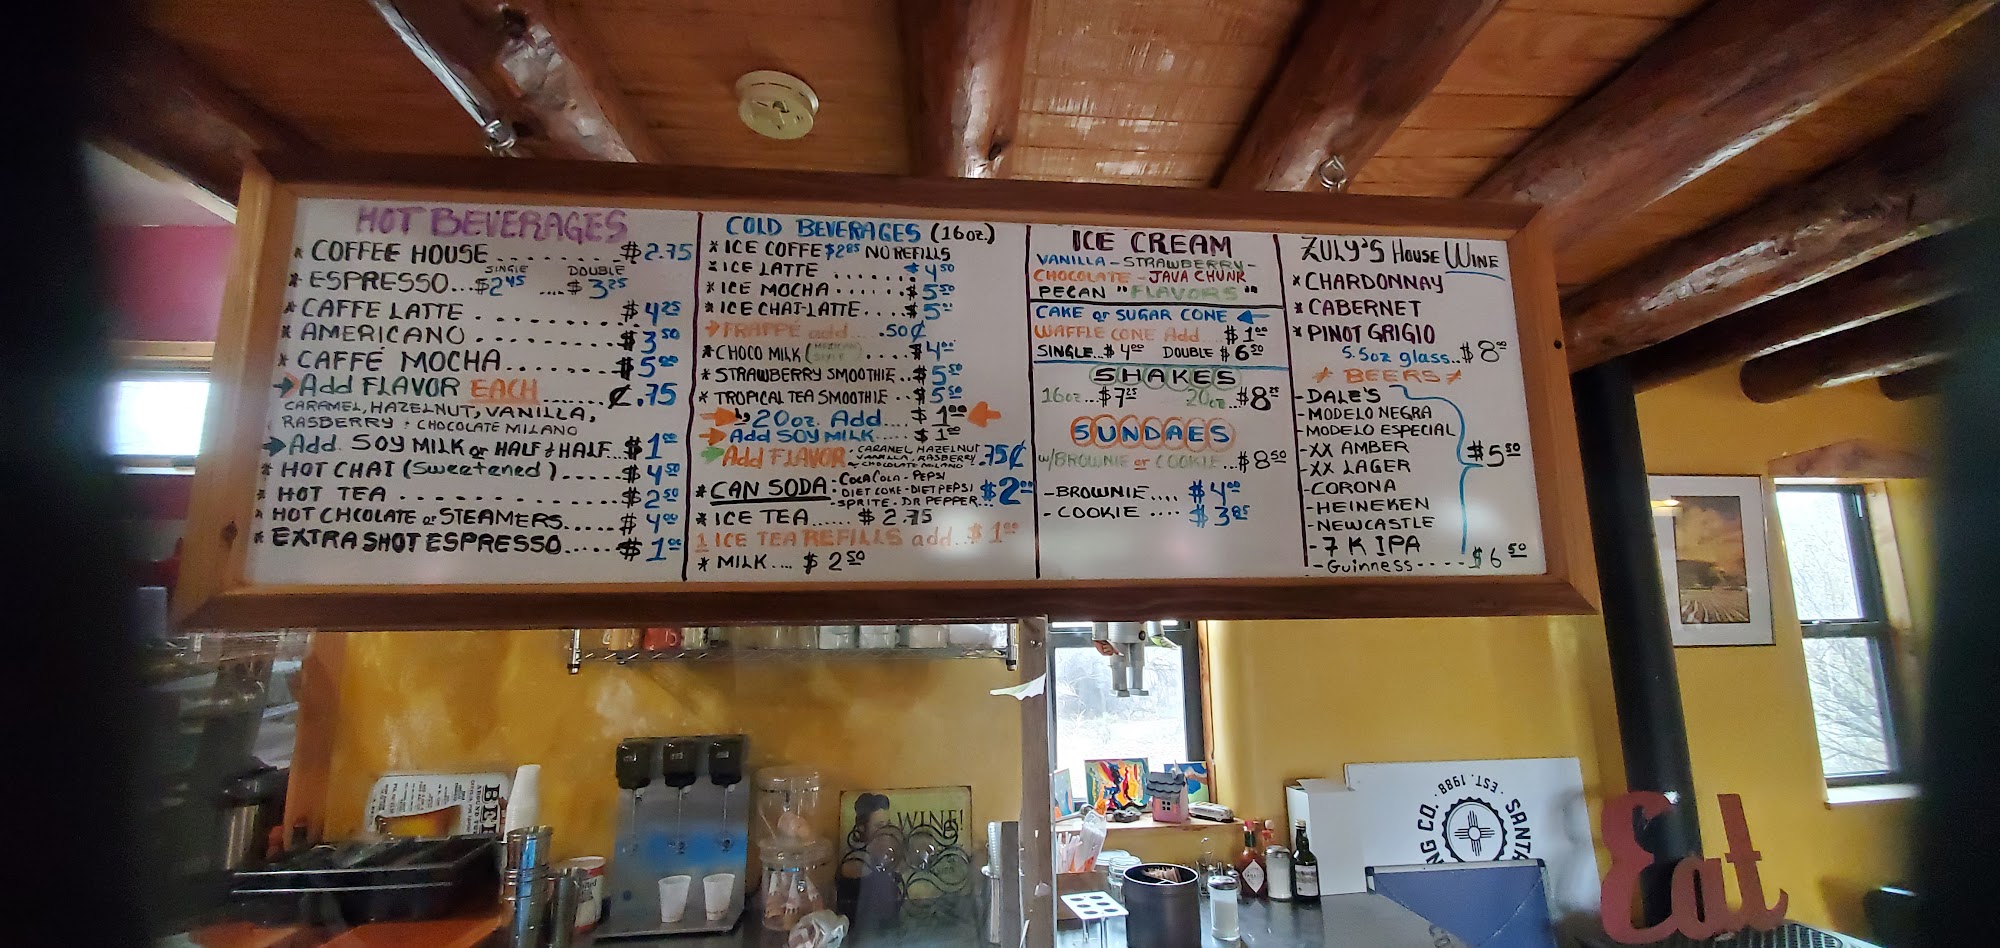 HOT BEVERAGES
* COFFEE HOUSE ....... $2.75
SINGLE DOUBLE
* ESPRESSO... $2 45 .... $3 25
* CAFFE LATTE ........ $4 25
* AMERICANO ........ $3 50
* CAFFÉ MOCHA....... $5 00
→ Add FLAVOR EACH ...... ₵.75
CARAMEL, HAZELNUT, VANILLA,
RASBERRY · CHOCOLATE MILANO
→ Add. SOY MILK or HALF & HALF.. $1 00
* HOT CHAI (Sweetened) .... $4 50
* HOT TEA ............ $2 50
* HOT CHCOLATE or STEAMERS..... $4 00
* EXTRA SHOT ESPRESSO..... $1 00
COLD BEVERAGES (16oz.)
* ICE COFFE $2 85 NO REFILLS
* ICE LATTE ...... $4 50
* ICE MOCHA ...... $5 50
* ICE CHAI-LATTE .... $5
→ FRAPPE add .... .50¢
* CHOCO MILK (MEXICAN STYLE) .... $4 00
* STRAWBERRY SMOOTHIE.. $5 50
* TROPICAL TEA SMOOTHIE.. $5 50
→ 20oz. Add.... $1 00 ←
→ Add SOY MILK.... $1 00
→ Add FLAVOR · CARAMEL HAZELNUT
VANILLA, RASBERRY .75¢
CHOCOLATE MILANO
* CAN SODA : COCA COLA - PEPSI
DIET COKE - DIET PEPSI $2 00
- SPRITE - DR PEPPER...
* ICE TEA...... $2.75
1 ICE TEA REFILLS add.. $1 00
* MILK.... $2 50
ICE CREAM
VANILLA - STRAWBERRY -
CHOCOLATE - JAVA CHUNK
PECAN "FLAVORS"
CAKE or SUGAR CONE ←
WAFFLE CONE Add $1 00
SINGLE.. $4 00 DOUBLE $6 50
SHAKES
16oz... $7 25 20oz.. $8 25
SUNDAES
w/BROWNIE or COOKIE... $8 50
- BROWNIE.... $4 00
- COOKIE .... $3 85
ZULY'S HOUSE WINE
* CHARDONNAY
* CABERNET
* PINOT GRIGIO
5.5oz glass.. $8 00
* BEERS *
- DALE'S
- MODELO NEGRA
- MODELO ESPECIAL
- XX AMBER $5 50
- XX LAGER
- CORONA
- HEINEKEN
- NEWCASTLE
- 7 K IPA
- Guinness ---- $6 50
WINE!
NG CO. · EST. 1988 · SANTA
Eat